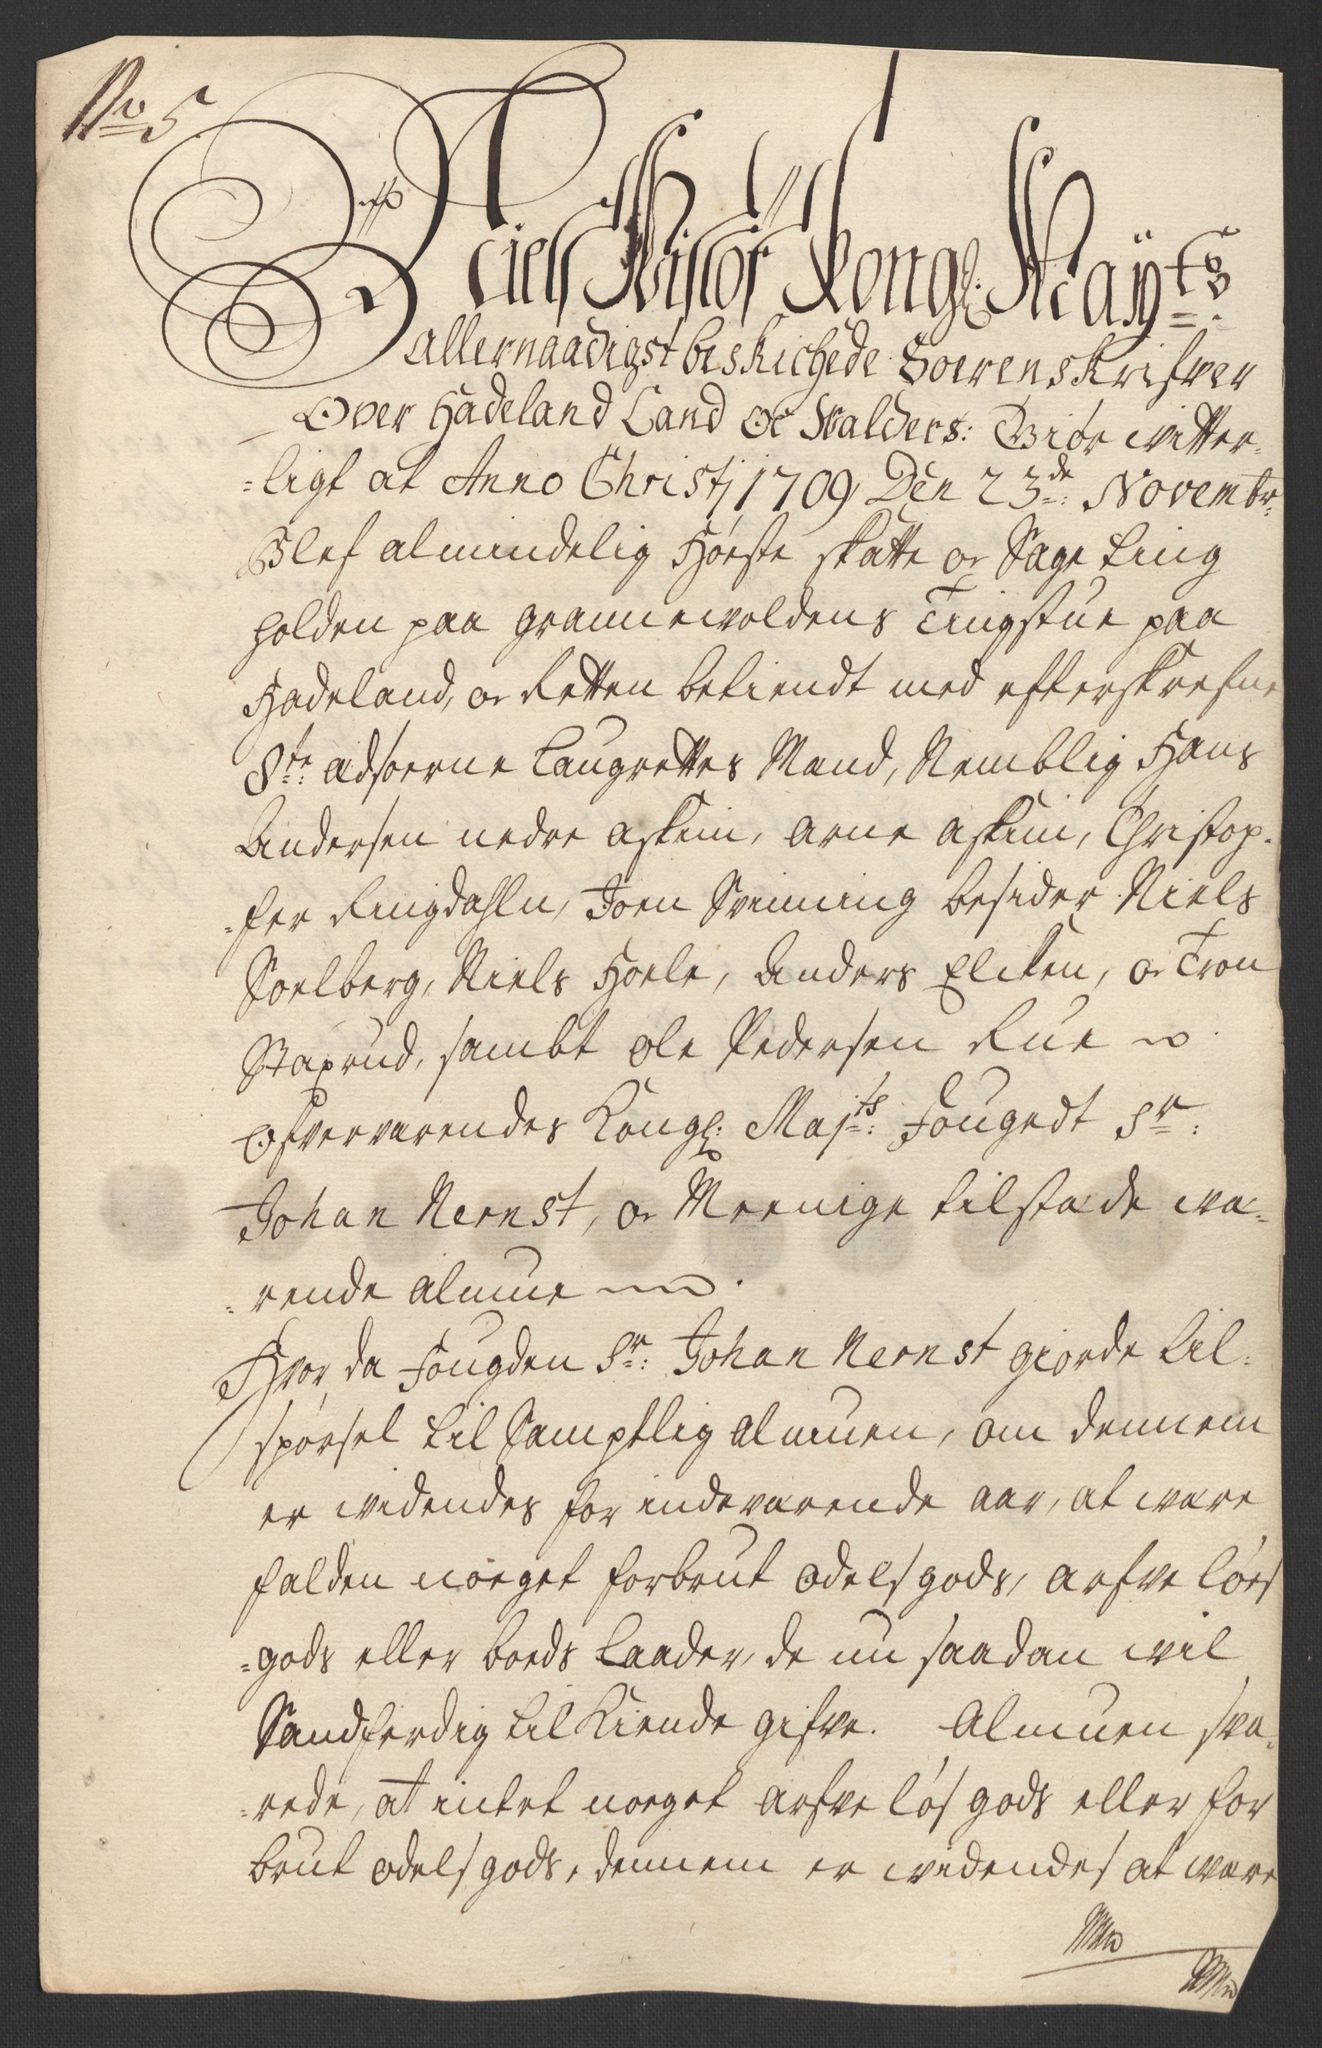 No 5
Niels Wislof Kongl: Mayts:
allernaadigst beskichede Soerenskrifver
Over Hadeland Land oc Walders: Giør vitter-
=ligt at Anno Christj 1709 Den 23de: Novembr:
Blef almindelig Høste skatte oc Sage ting
holden paa grannevoldens Tingstue paa
Hadeland, oc Retten betiendt med efterskrefne
8te: Edsoerne Laugrettes Mænd, Nemblig Hans
Andersen nedre askim, arne askim, Christop-
=fer Ringdahln, Joen Svinning besider Niels
Soelberg, Niels Hoele, Anders Elcken, oc Tron
Staxrud, sambt ole Pedersen Rue
Ofververendes Kongl: Majts: Fougedt Sr:
Johan Nernst, oc Meenige tilstæde væ-
=rende almue
Hvor da Fougden Sr: Johan Nernst giorde til-
spørsel til Samptlig almuen, om dennem
er videndes for indeværende aar, at være
falden noeget forbrut odelsgods, arfve løes
=gods eller boeds Laader, de nu saadan vil
Sandferdig til Kiende gifve. Almuen sva-
=rede, at intet noeget arfve løs gods eller for
brut odelsgods, dennem er videndes at være